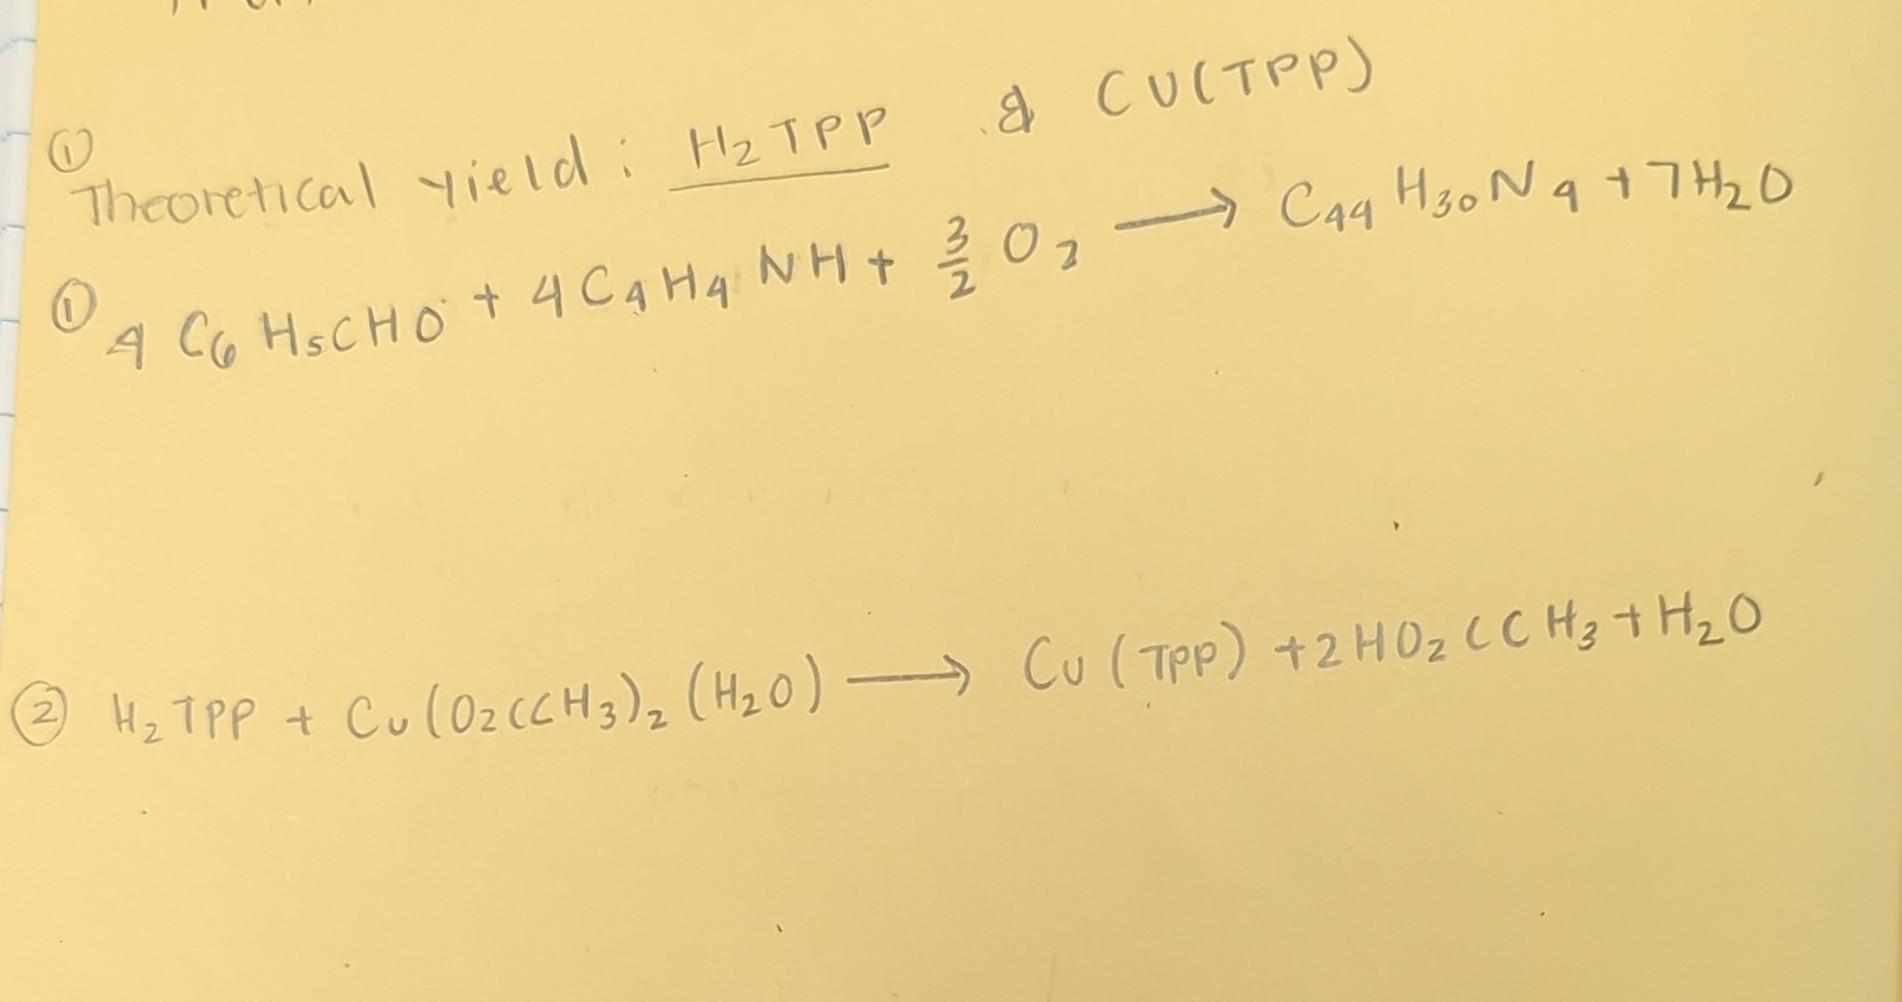 ①
Theoretical yield: H₂TPP & CU(TPP)
① 4 C₆H₅CHO + 4C₄H₄NH + 3/2 O₂ → C₄₄H₃₀N₄ + 7H₂O
② H₂TPP + Cu(O₂CCH₃)₂(H₂O) → Cu(TPP) + 2HO₂CCH₃ + H₂O